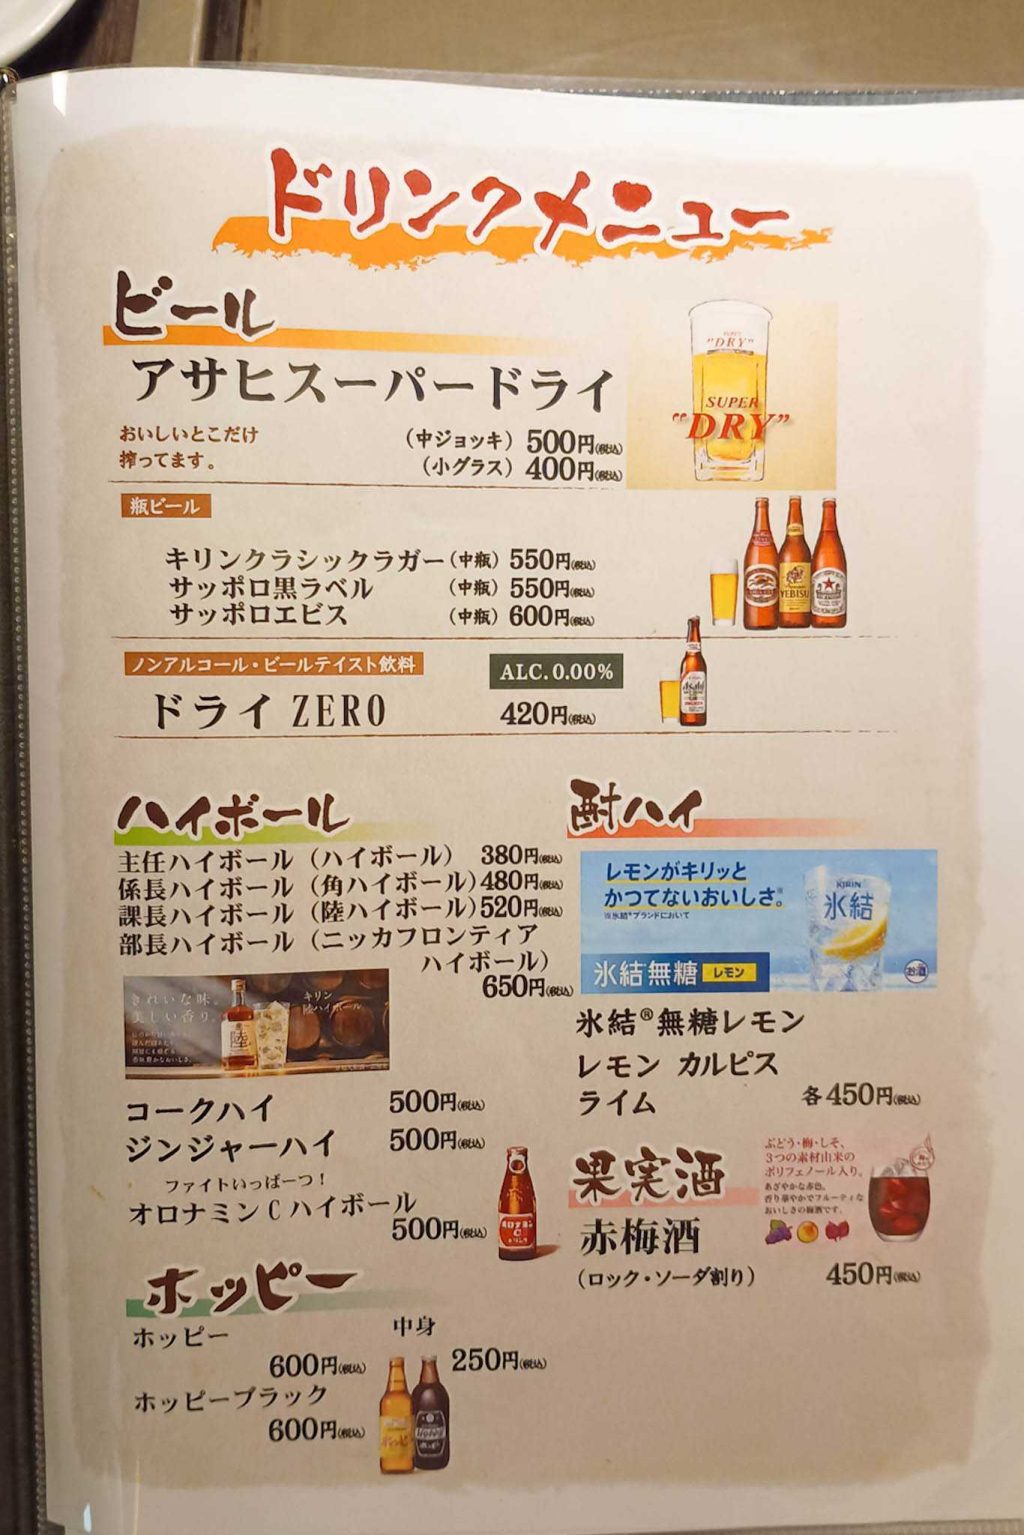 ドリンクメニュー
ビール
アサヒスーパードライ
おいしいとこだけ
搾ってます。
(中ジョッキ) 500円(税込)
(小グラス) 400円(税込)
SUPER
"DRY"
瓶ビール
キリンクラシックラガー(中瓶) 550円(税込)
サッポロ黒ラベル (中瓶) 550円(税込)
サッポロエビス (中瓶) 600円(税込)
YEBISU
ノンアルコール・ビールテイスト飲料
ALC.0.00%
ドライ ZERO 420円(税込)
Asahi
ハイボール
主任ハイボール (ハイボール) 380円(税込)
係長ハイボール (角ハイボール) 480円(税込)
課長ハイボール (陸ハイボール) 520円(税込)
部長ハイボール (ニッカフロンティア
ハイボール)
650円(税込)
きれいな味。
美しい香り。
陸
キリン
陸ハイボール
コークハイ 500円(税込)
ジンジャーハイ 500円(税込)
ファイトいっぱーつ!
オロナミンCハイボール
500円(税込)
オロナミン
C
ドリンク
ホッピー
ホッピー
600円(税込)
中身
250円(税込)
ホッピーブラック
600円(税込)
酎ハイ
レモンがキリッと
かつてないおいしさ。※
※氷結®ブランドにおいて
KIRIN
氷結
氷結無糖 レモン
お酒
氷結®無糖レモン
レモン カルピス
ライム 各450円(税込)
果実酒
ぶどう・梅・しそ、
3つの素材由来の
ポリフェノール入り。
あざやかな赤色。
香り華やかでフルーティな
おいしさの梅酒です。
赤梅酒
(ロック・ソーダ割り) 450円(税込)